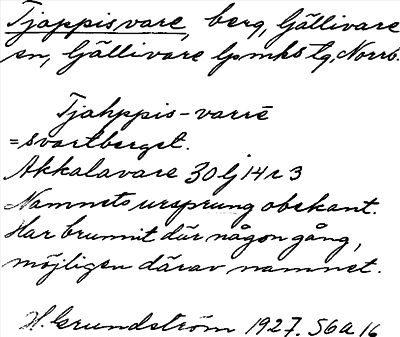 Tjappisvare, berg, Gällivare
sn, Gällivare lpmks tg, Norrb.
Tjahppis-varrē
=svartberget.
Akkalavare 30 lj 14 r 3
Namnets ursprung obekant.
Har brunnit där någon gång,
möjligen därav namnet.
H. Grundström 1927. S6a 16